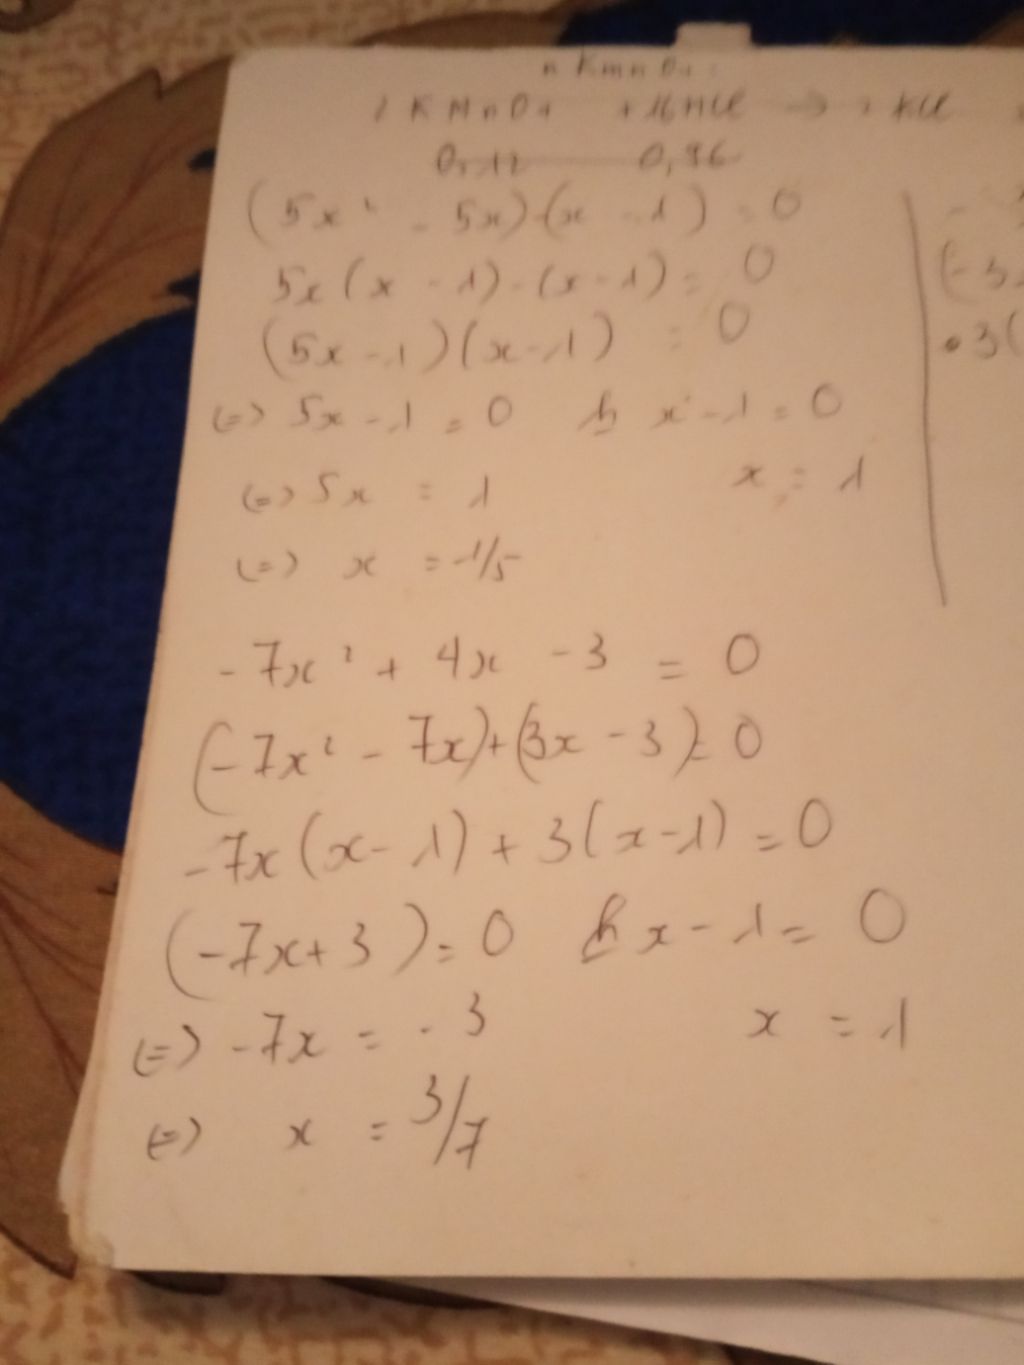 n KmnO4 :
2 KMnO4 + 16HCl → 2 KCl
0,12 0,96
(5x² - 5x)-(x - 1) = 0
5x(x - 1)-(x-1)= 0
(5x-1)(x-1) = 0
(=> 5x-1 = 0 h x-1 = 0
(=> 5x = 1 x = 1
(=> x = 1/5
-7x² + 4x - 3 = 0
(-7x² - 7x)+(3x - 3)= 0
-7x(x-1) + 3(x-1) = 0
(-7x+3)= 0 h x-1 = 0
(=> -7x = -3 x = 1
(=> x = 3/7
(-3
3(